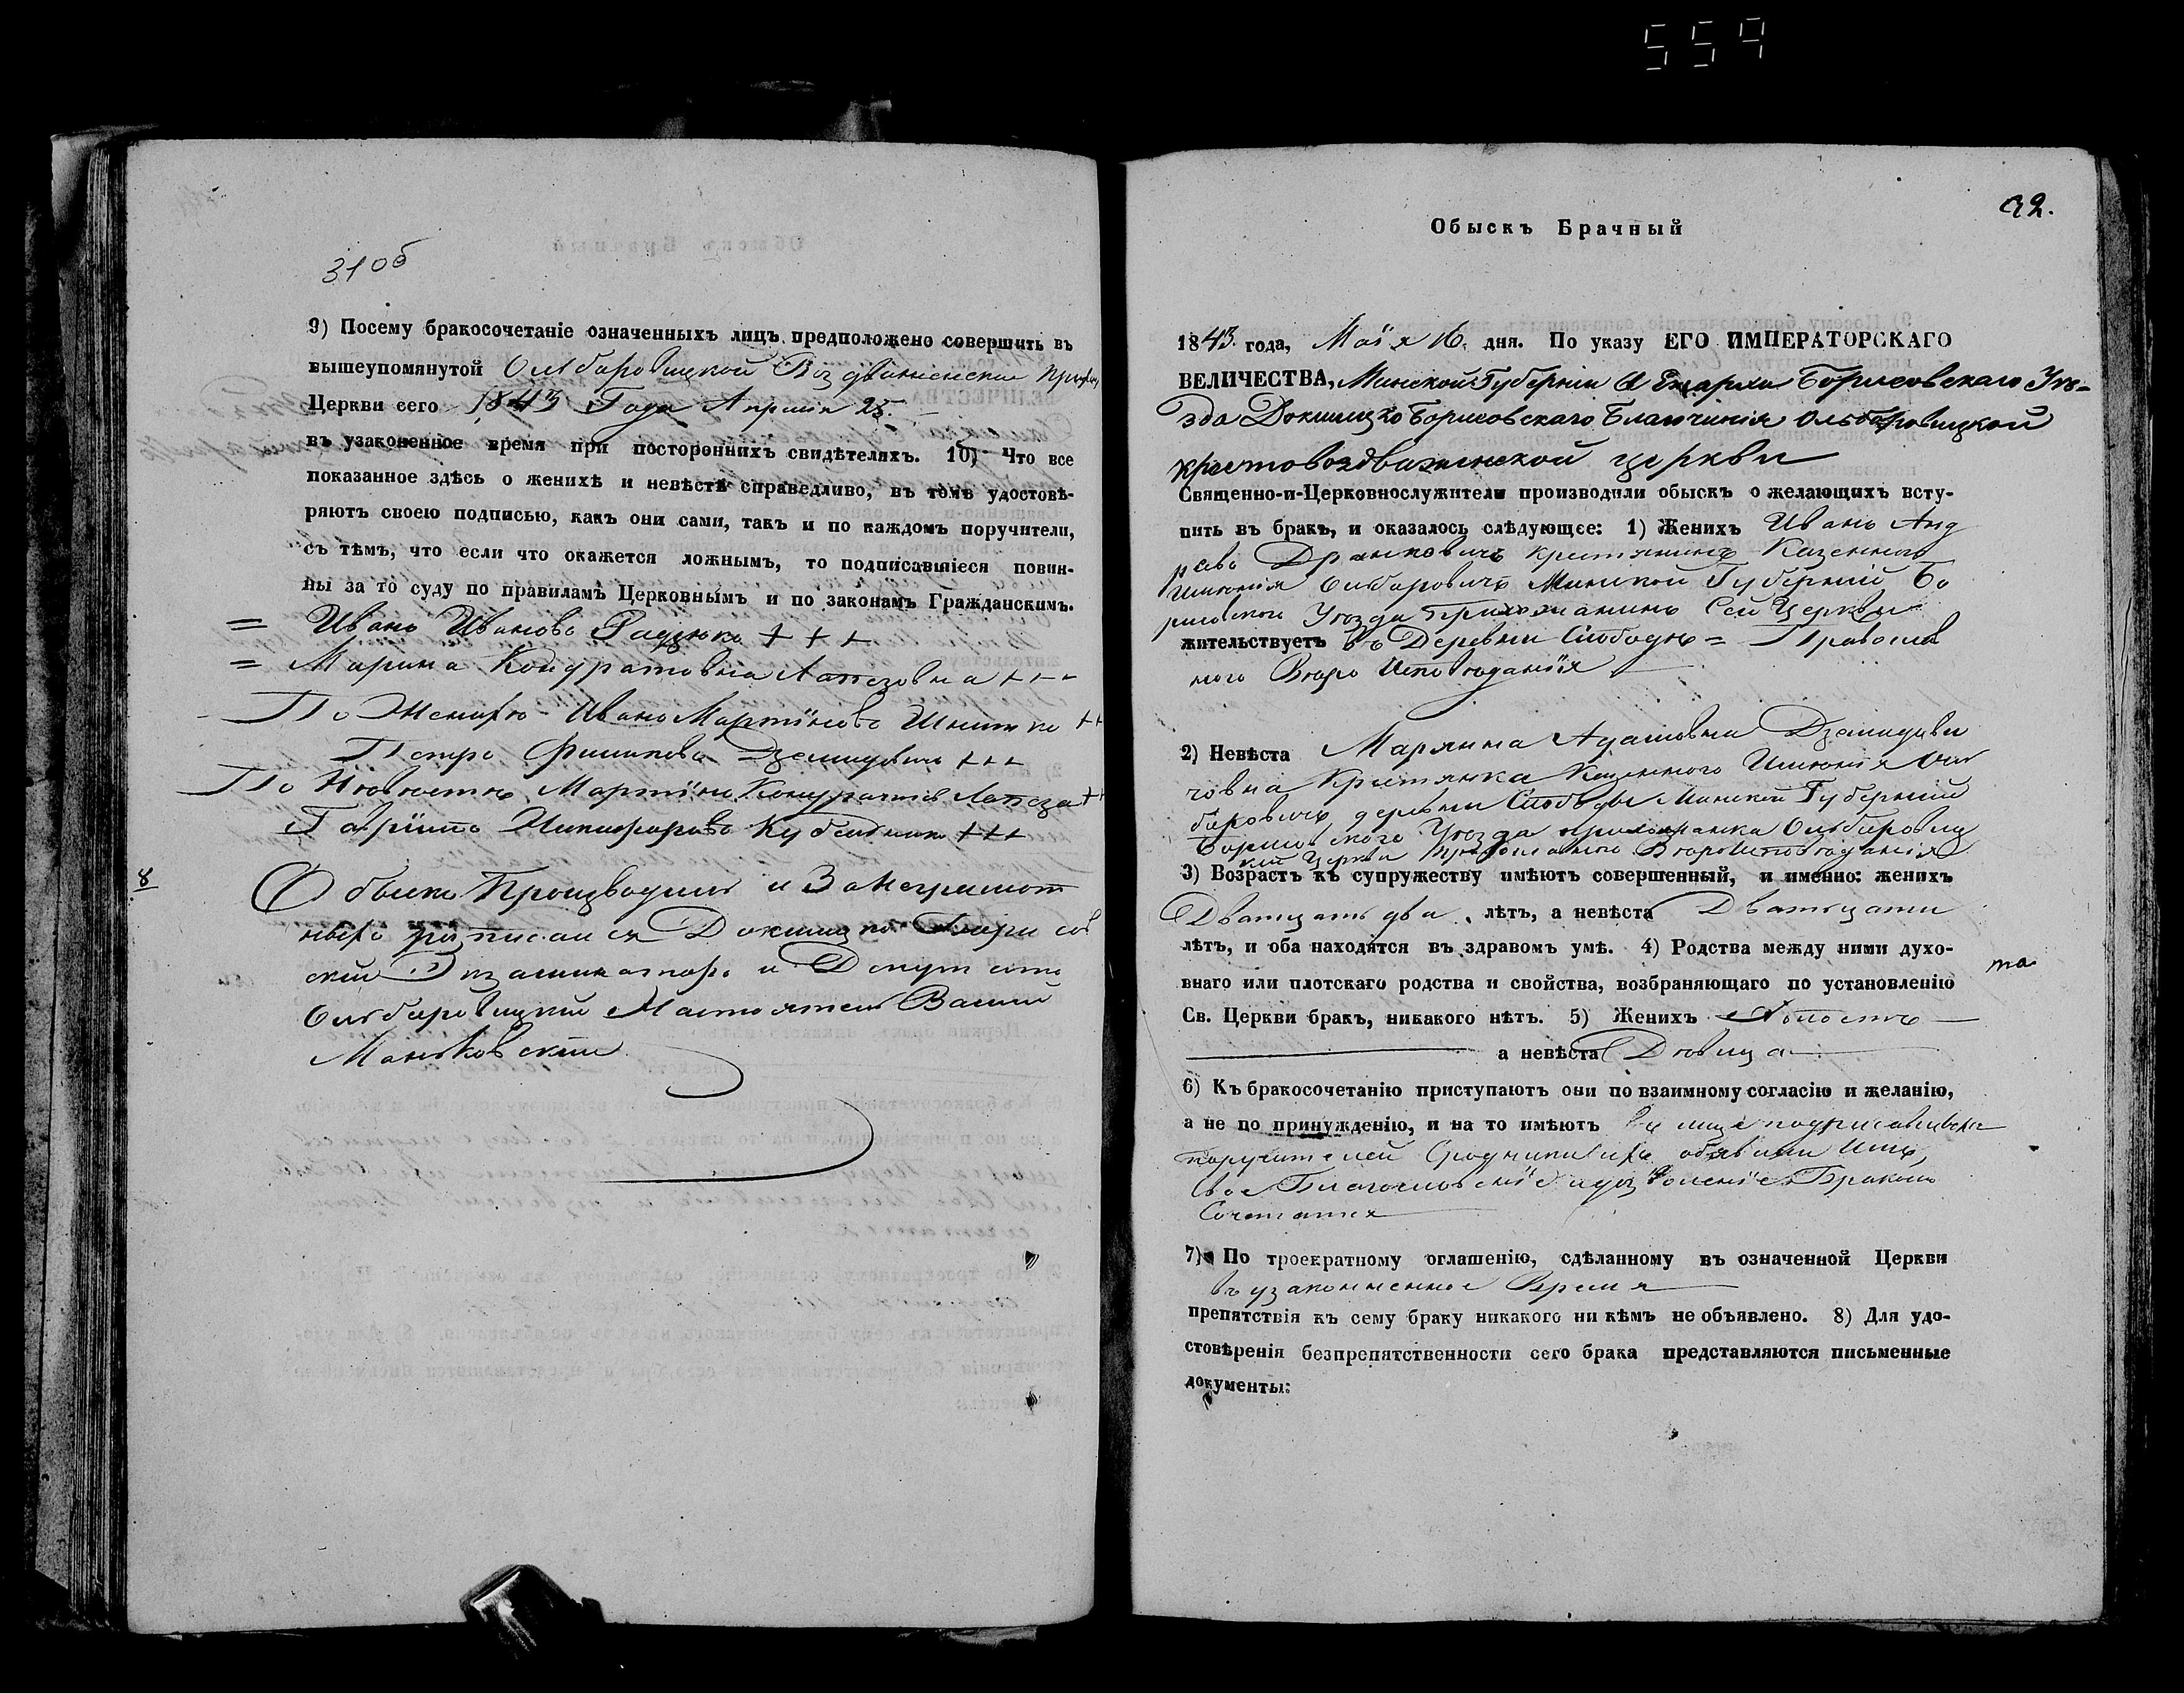 559
31 об
9) Посему бракосочетаніе означенныхъ лицъ предположено совершить въ
вышеупомянутой Ольбаровицкой Воздвиженской
Церкви сего 1843 Года Апрѣля 25.
въ узаконенное время при постороннихъ свидѣтеляхъ. 10) Что все
показанное здѣсь о женихѣ и невѣстѣ справедливо, въ томъ удостовѣ-
ряютъ своею подписью, какъ они сами, такъ и по каждомъ поручители,
съ тѣмъ, что если что окажется ложнымъ, то подписавшіеся повин-
ны за то суду по правиламъ Церковнымъ и по законамъ Гражданскимъ.
= Иванъ Ивановъ Радзюкъ + + +
= Марина Кондратовна Лапезовна + + -
По Женихѣ - Иванъ Мартиновъ Шнитко ++
Петръ Филиповъ Дземидовичъ +++
По Невѣстѣ Мартинъ Кондратовъ Лапеза ++
Гаврiилъ Никифоровъ +++
8
Обыскъ Производилъ и За Неграмот
ныхъ росписался Докшицко Борисов
скій Экзаминаторъ и Депутатъ
Ольбаровицкій Настоятель Василій
Маньковскій
32.
Обыскъ Брачный
1843. года, Маiя 16. дня. По указу ЕГО ИМПЕРАТОРСКАГО
ВЕЛИЧЕСТВА, Минской Губерніи и Епархіи Борисовскаго Уѣ-
зда Докшицко Борисовскаго Благочинія Ольбаровицкой
крестовоздвиженской церкви
Священно-и-Церковнослужители производили обыскъ о желающихъ всту-
пить въ бракъ, и оказалось слѣдующее: 1) Женихъ Иванъ Анд
реевъ Дранковичъ крестянинъ Казенного
Имѣнія Ольбаровичъ Минской Губерній Бо
рисовской Уѣзда Прихожанинъ Сей Церкви
жительствуетъ въ Деревни Слободѣ = Православ
ного Вѣроисповѣданія
2) Невѣста Марянна Адамовна Дземидови
човна Крестянка Казенного Имѣнія Оль
баровичъ деревни Слободы Минской Губерній
Борисовского Уѣзда прихожанка Ольбаровиц
кой Церкви Православного Вѣроисповѣданія
3) Возрастъ къ супружеству имѣютъ совершенный, и именно: женихъ
Дватцать два лѣтъ, а невѣста Дватцати
лѣтъ, и оба находятся въ здравомъ умѣ. 4) Родства между ними духо-
внаго или плотскаго родства и свойства, возбраняющаго по установленію
Св. Церкви бракъ, никакого нѣтъ. 5) Женихъ Холостъ
а невѣста Дѣвица
6) Къ бракосочетанію приступаютъ они по взаимному согласію и желанію,
а не по принужденію, и на то имѣютъ
поручителей обявили Имъ
свое Благословеніе и дозволеніе Бракомъ
Сочетатся
7) По троекратному оглашенію, сдѣланному въ означенной Церкви
въ узаконненное Время
препятствія къ сему браку никакого ни кѣмъ не объявлено. 8) Для удо-
стовѣренія безпрепятственности сего брака представляются письменные
документы: